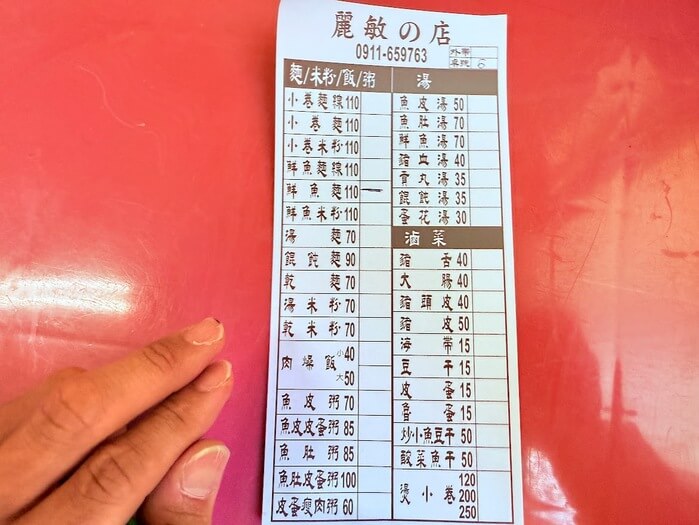 麗敏の店
0911-659763
外帶
桌號 6
麵/米粉/飯/粥
小卷麵線 110
小卷麵 110
小卷米粉 110
鮮魚麵線 110
鮮魚麵 110 一
鮮魚米粉 110
湯麵 70
餛飩麵 90
乾麵 70
湯米粉 70
乾米粉 70
肉燥飯 小 40
大 50
魚皮粥 70
魚皮皮蛋粥 85
魚肚粥 85
魚肚皮蛋粥 100
皮蛋瘦肉粥 60
湯
魚皮湯 50
魚肚湯 70
鮮魚湯 70
豬血湯 40
貢丸湯 35
餛飩湯 35
蛋花湯 30
滷菜
豬舌 40
大腸 40
豬頭皮 40
豬皮 50
海帶 15
豆干 15
皮蛋 15
魯蛋 15
炒小魚豆干 50
酸菜魚干 50
燙小卷 120
200
250